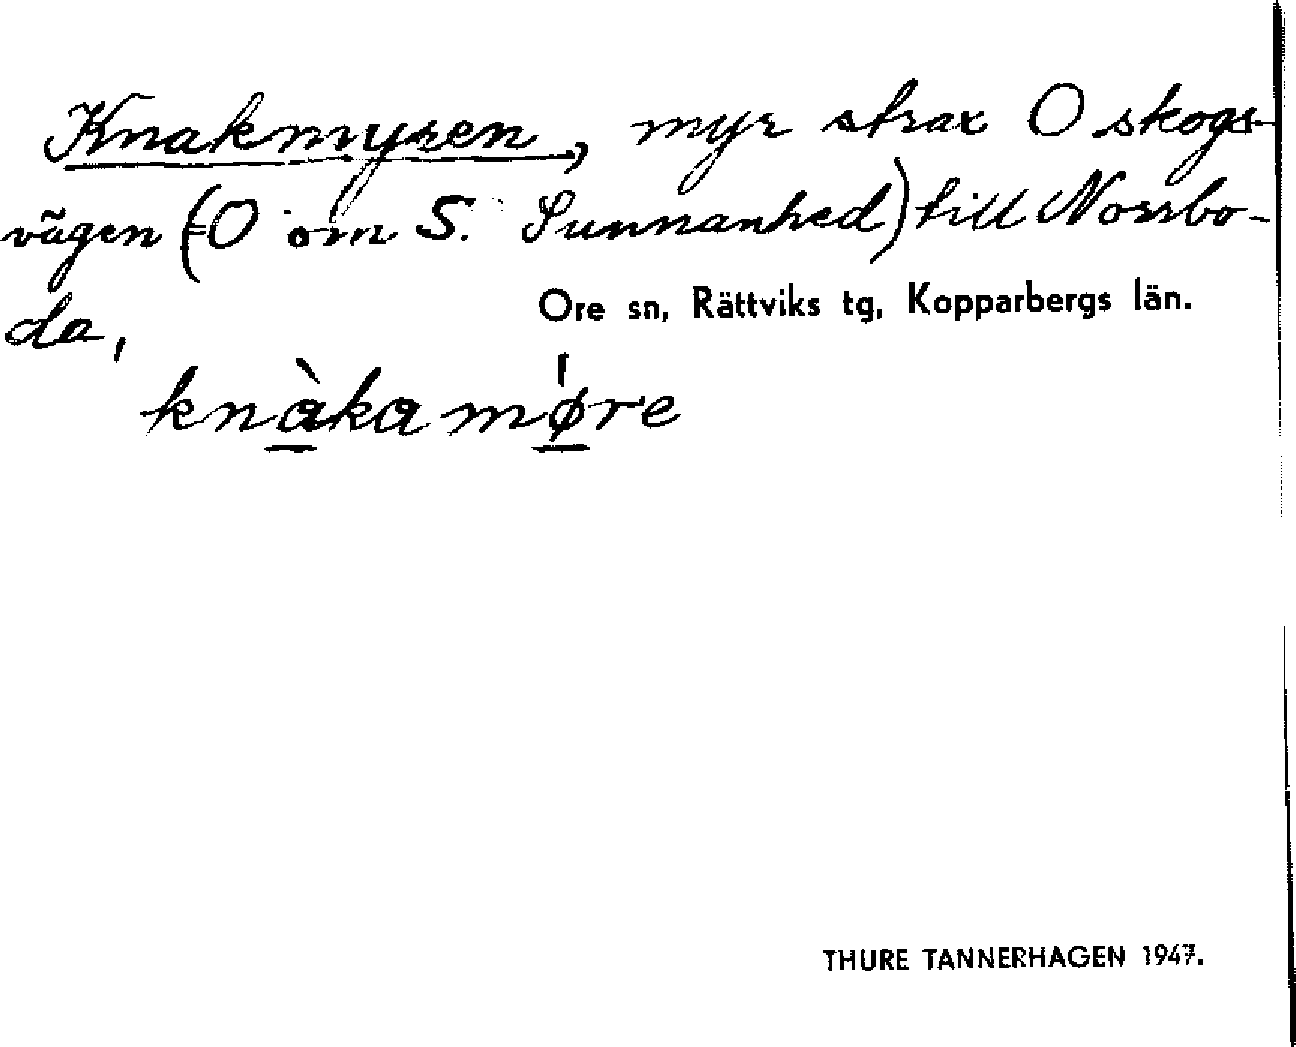 Knakmyren, myr strax O skogs-
vägen (O om S. Sunnanhed) till Norrbo-
da,
Ore sn, Rättviks tg, Kopparbergs län.
knàkamø̍re
THURE TANNERHAGEN 1947.